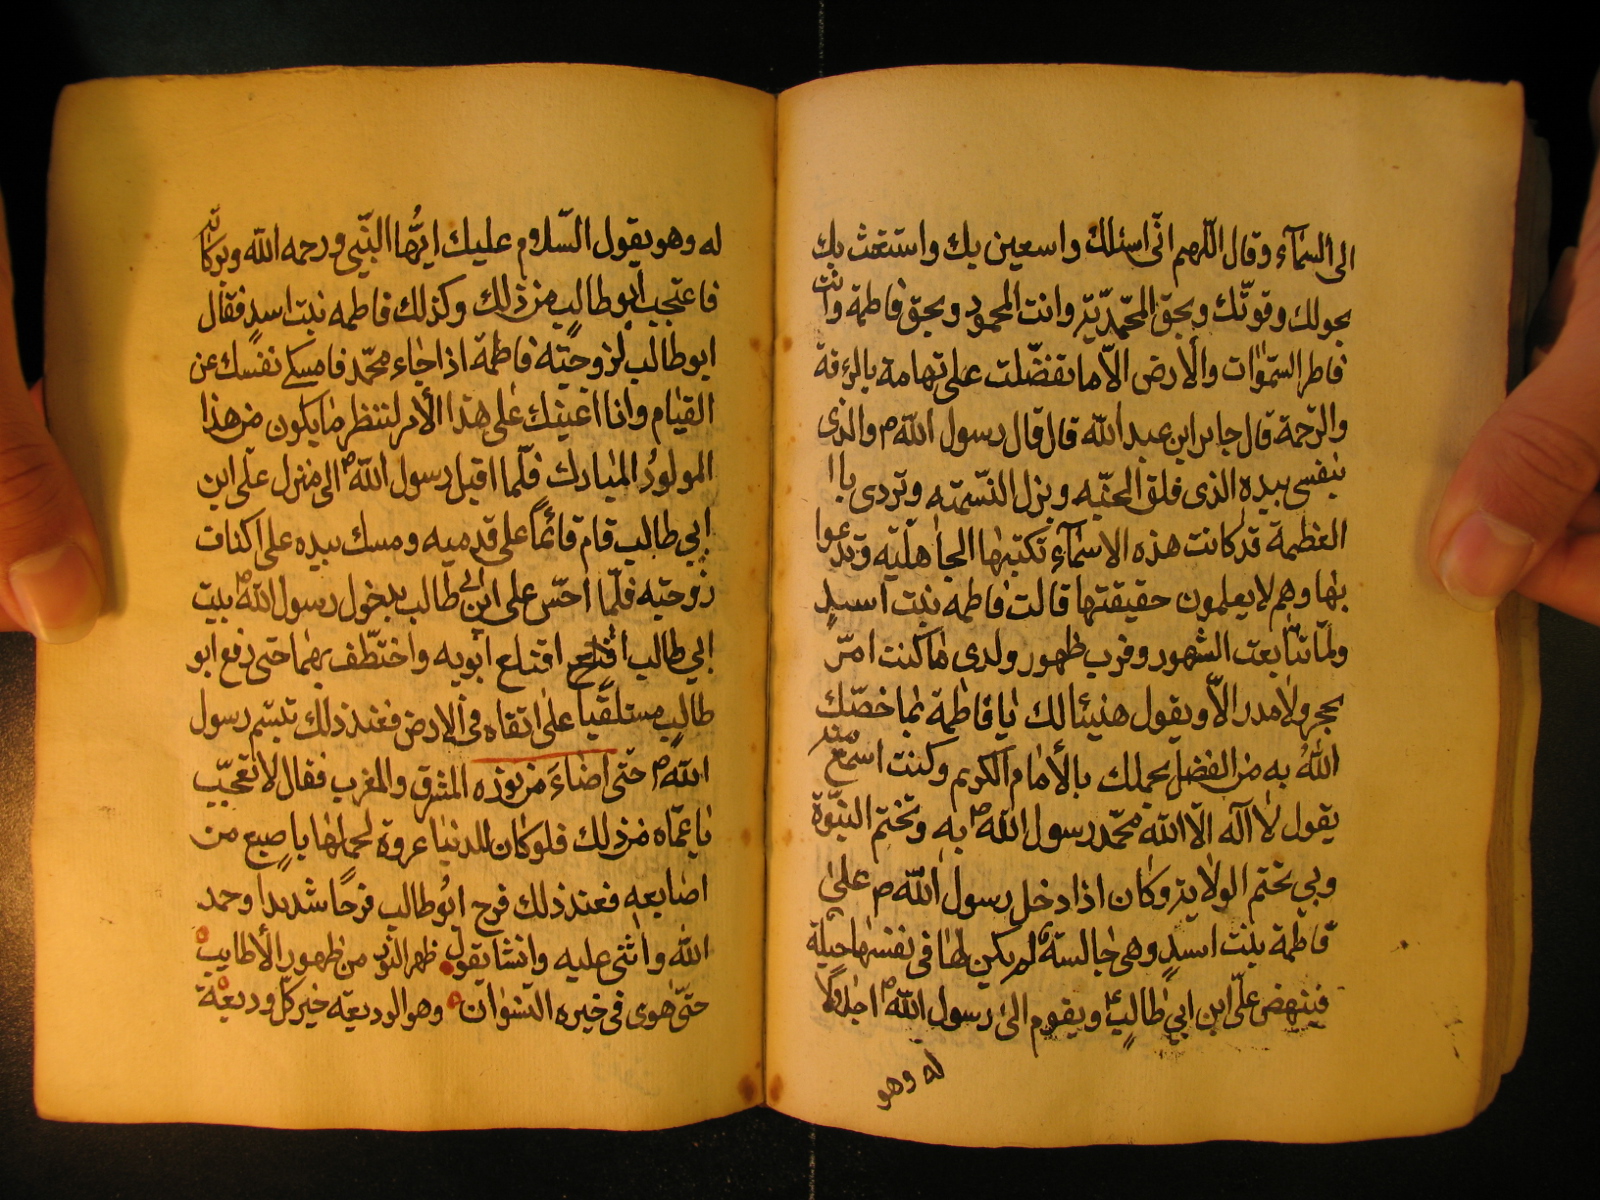 الى السمآء وقال اللهم انّى اسئلك واسعين بك واستغث بك
بحولك وقوتّك وبحق المحمّديّة وانت المحمود وبحق فاطمة وانت
فاطر السّمٰوٰات والأرض الاّ ما تفضّلت على تهامة بالرءفة
والرّحمة قال جابر ابن عبد الله قال قال رسول الله ص والذى
نفسى بيده الذى فلق الحبّه وبزل النسّمته وتردى باا
العظمة قد كانت هذه الاسمآء تكتبها الجاهليّه وتدعوا
بها وهم لا يعلمون حقيقتها قالت فاطمه بنت اسدٍ
ولمّا تتابعت الشهور وقرب ظهور ولدى ماكنت امرّ
بحجر ولا مدر الاّ ويقول هنيئا لك يا فاطمة بما خصّك
اللهُ به من الفضل بحملك بالأمام الكريم وكنت اسمع
يقول لا اله الا الله محمّد رسول الله ص به وتختم النبوّة
وبي تختم الولاية وكان اذا دخل رسول الله ص على
فاطمة بنت اسدٍ وهى جالسة لم يكن لها فى نفسها حيلة
فينهض علىّ ابن ابي طالبٍ ويقوم الى رسول الله ص اجلالًا
له وهو
له وهو يقول السّلام عليك ايّها النّبي ورحمه الله وبركاته
فاعتجب ابو طالب من ذلك وكذلك فاطمه بنت اسدٍ فقال
ابو طالب لزوجته فاطمة اذا جاء محمّد فامسكى نفسك عن
القيام وانا اعينك على هذا الأمر لننظر ما يكون من هذا
المولودُ المبارك فلّما اقبل رسول الله ص الى منزل على ابن
ابي طالب قام قائماً على قدميه ومسك بيده على اكتاف
زوجته فلّما احسّ على ابن ابي طالب بدخول رسول الله ص بيت
ابي طالب اقتلع اقتلع ابويه واختطّف بهما حتى دفع ابو
طالبٍ مستلقياً على اتقاه فى الارض فعند ذلك تبسّم رسول
الله ص حتى اضاءَ من نوره المشرق والمغرب فقال لا تعجّب
يا عمّاه من ذلك فلو كان للدنيا عروة لحملها باصبع من
اصابعه فعند ذلك فرح ابُو طالب فرحًا شديدا وحمد
الله واثنى عليه وانشا يقول ظهر النّور من ظهور الأطايب
حتّى هوى فى خيره النسوان وهو الوديعته خير كلّ وديعة